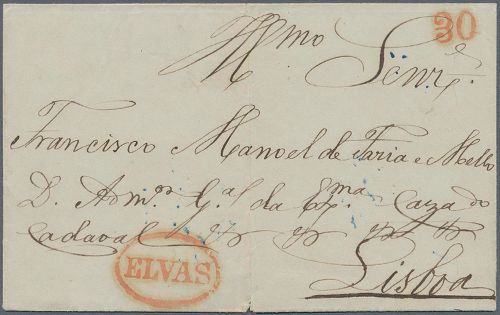 30
Illmo Senr.
Francisco Manoel de Faria e Mello
D. Admor. Gal. da Exma. Caza do
Cadaval
ELVAS
Lisboa